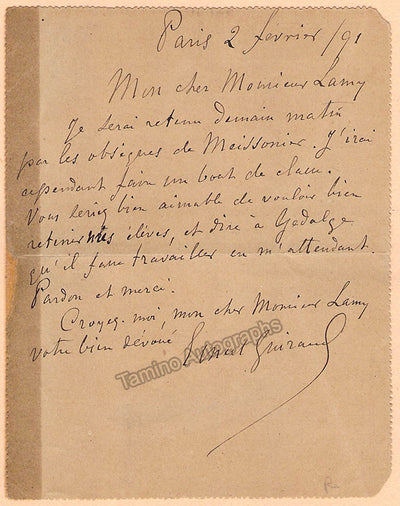 Paris 2 février /91
Mon cher Monsieur Lamy
Je serai retenu demain matin
par les obsèques de Meissonier. J'irai
cependant faire un bout de classe.
Vous seriez bien aimable de vouloir bien
retenir mes élèves, et dire à Gedalge
qu'il fasse travailler en m'attendant.
Pardon et merci.
Croyez-moi, mon cher Monsieur Lamy
votre bien dévoué Ernest Guiraud
Tamino Autographs